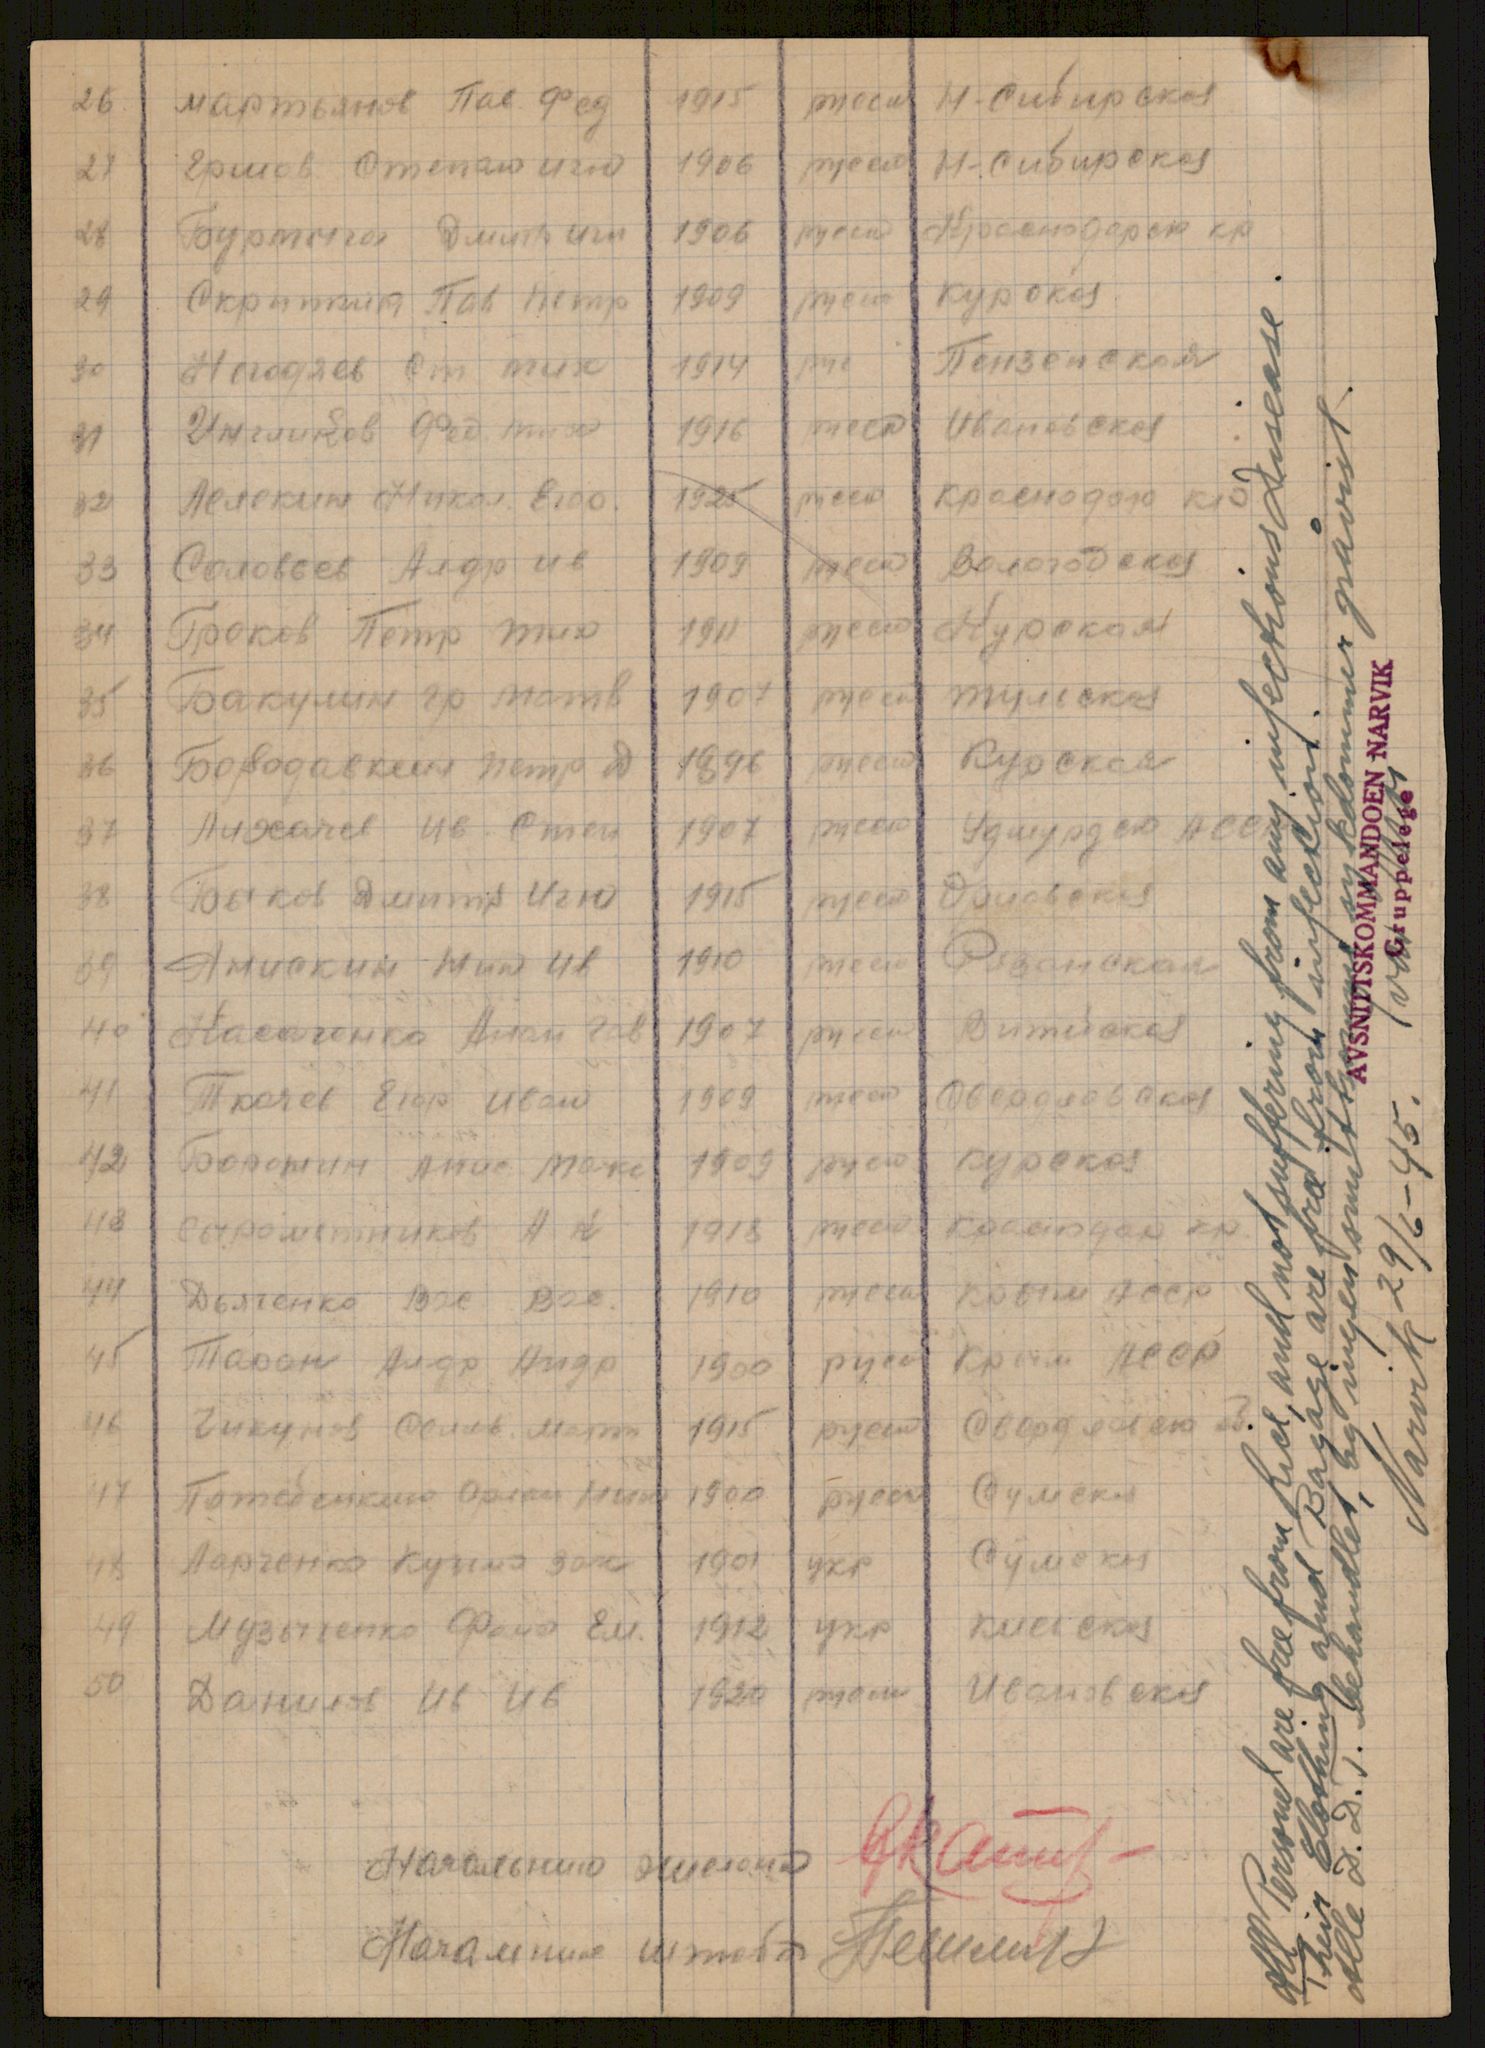 26 Мартьянов Пав. Фед 1915 русск Н-Сибирская
27 Ершов Степан Игн 1906 русск Н-Сибирская
28 Дмитр Игн 1906 русск Краснодарск кр
29 Скрипкин Пав Петр 1909 русск Курская
30 Негодяев Ст Мих 1914 рус Пензенская
31 Фед. Мих 1916 русск Ивановская
32 Лелекин Никол. Егор. 1925 русск Краснодарск кр
33 Соловьев Алдр Ив 1909 русск Вологодская
34 Гроков Петр Мих 1911 русск Курская
35 Бакулин Гр Матв 1907 русск Тульская
36 Бородавкин Петр Д 1896 русск Курская
37 Лихачев Ив. Степ 1907 русск Удмурдск АСС
38 Быков Дмитр Игн 1915 русск Орловская
39 Анискин Мих Ив 1910 русск Рязанская
40 Анан Гав 1907 русск
41 Ткачев Егор Иван 1909 русск Свердловская
42 Макс 1909 русск Курская
43 Сыромятников А 1918 русск Краснодар кр.
44 Дьяченко Вас Вас. 1910 русск Крым АССР
45 Таран Алдр Андр 1900 русск Крым АССР
46 Чикунов Матв 1915 русск
47 1900 русск Сумска
48 Ларченко Кузма Зах 1901 укр Сумска
49 Музыченко Фома Ем. 1912 укр Киевская
50 Данилов Ив Ив 1920 русск Ивановская
Начальник эшелона
Начальник штаба
All Personel are free from lice, and not suffering from any infectious disease.
Their Clothing and Bagage are free from infection.
Alle D.D.T. behandlet, og ingen smittsomme sykdommer påvist.
AVSNITTSKOMMANDOEN NARVIK
Gruppelege
Narvik 29/6-45.